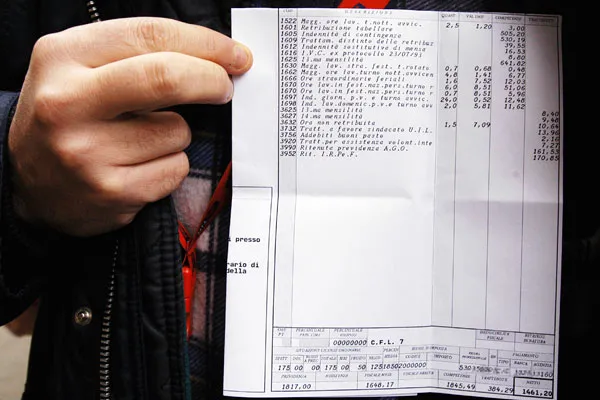 DESCRIZIONE QUANT. VALORI COMPETENZE TRATTENUTE
1522 Magg. ore lav.t.nott. avvic. 2,5 1,20 3,00
1601 Retribuzione tabellare 505,20
1605 Indennità di contingenza 530,19
1609 Trattam. distinto delle retribuz 39,55
1612 Indennità sostitutiva di mensa 16,53
1616 I.V.C. ex protocollo 23/07/93 8,80
1625 13.ma mensilità 641,82
1630 Magg. lav. stra. fest. t.rotato 0,7 0,68 0,48
1662 Magg. ore lav.turno nott.avvicen 4,8 1,41 6,77
1666 Ore straordinarie feriali 1,6 7,52 12,03
1670 Ore lav.in fest.naz.pers.turno r 6,0 8,51 51,06
1670 Ore lav.in fest.naz.pers.turno r 0,7 8,51 5,96
1697 Ind. giorn.p.v.e turno avvic. 24,0 0,52 12,48
1698 Ind. lav.domenic.p.v.e turno avv 2,0 5,81 11,62
3625 13.ma mensilità 8,40
3627 14.ma mensilità 9,48
3632 Ora non retribuita 1,5 7,09 10,64
3732 Tratt. a favore sindacato U.I.L. 13,96
3756 Addebiti buoni pasto 2,16
3920 Tratt.per assistenza volont.inte 7,27
3990 Ritenuta previdenza A.G.O. 161,53
3952 Rit. I.R.Pe.F. 170,85
i presso
rario di
della
00000000 C.F.L. 7
175 00 00 175 00 50
1817,00 1648,17 1845,49 384,29 1461,20